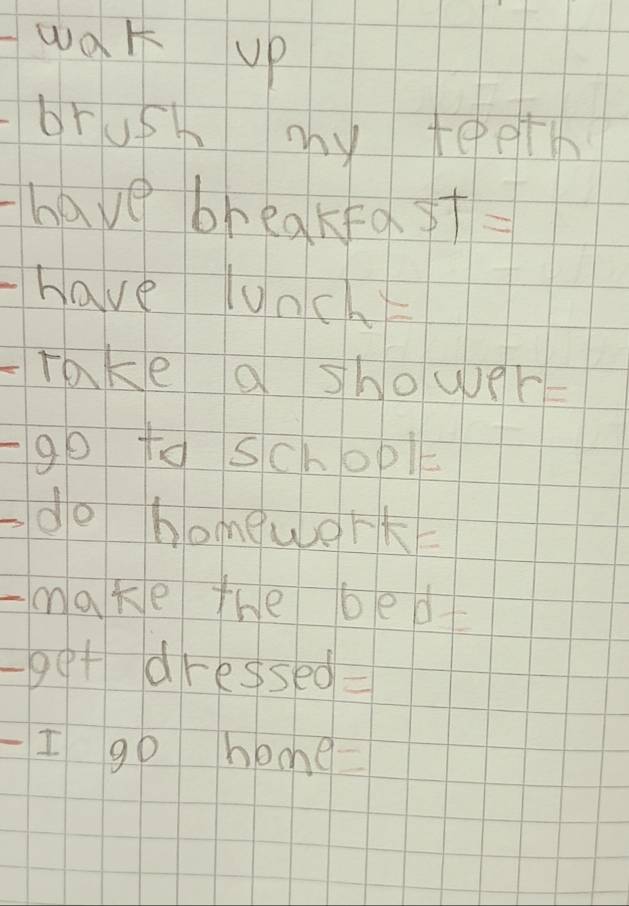 - wak up
- brush my teeth
- have breakfast =
- have lunch =
- take a shower =
- go to school =
- do homework =
- make the bed =
- get dressed =
- I go home =